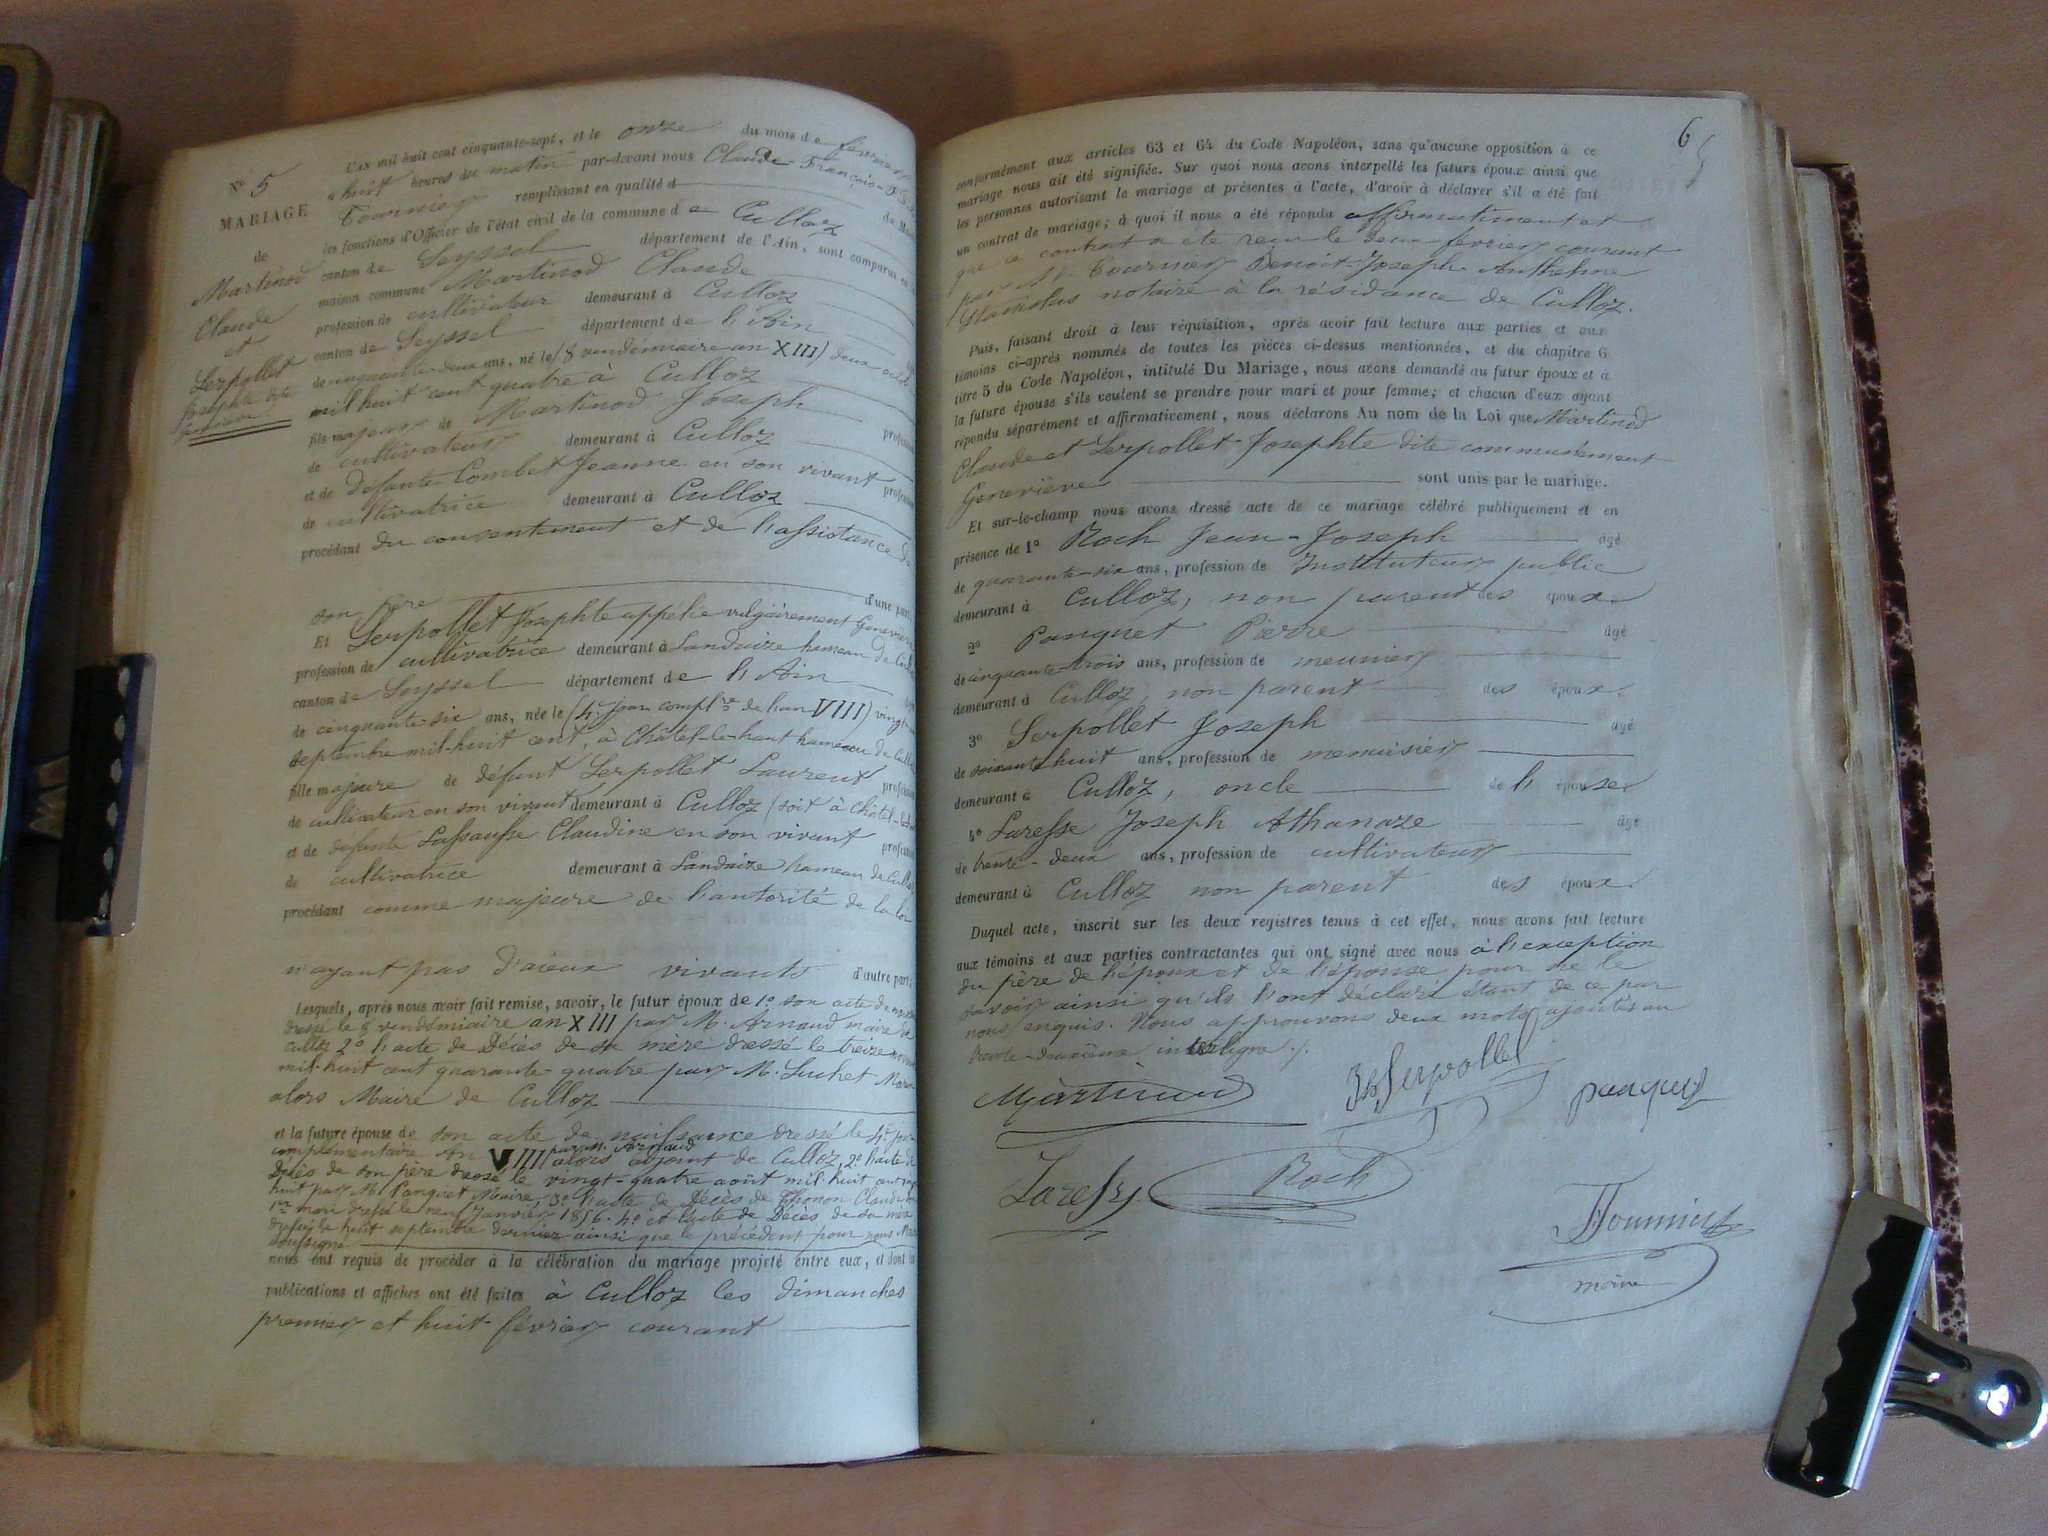 N° 5
MARIAGE
de
Martinod
Claude
et
Serpollet
Josephte dite
L'an mil huit cent cinquante-sept, et le onze du mois de février
à huit heures du matin par-devant nous Claude François
Tournier remplissant en qualité d de Maire
les fonctions d'Officier de l'état civil de la commune de Culloz
canton de Seyssel département de l'Ain, sont comparus en la
maison commune Martinod Claude
profession de cultivateur demeurant à Culloz
canton de Seyssel département de l'Ain
de cinquante-deux ans, né le (8 vendémiaire an XIII) deux
mil huit cent quatre à Culloz
fils majeur de Martinod Joseph profession
de cultivateur demeurant à Culloz
et de défunte Combet Jeanne en son vivant profession
de cultivatrice demeurant à Culloz
procédant du consentement et de l'assistance de
son père d'une part,
Et Serpollet Josephte appelée vulgairement Geneviève
profession de cultivatrice demeurant à Landaize hameau de
canton de Seyssel département de l'Ain
de cinquante-six ans, née le (4e jour complre de l'an VIII) vingt
septembre mil-huit cent, à Châtel-le-haut hameau de Culloz
fille majeure de défunt Serpollet Laurent profession
de cultivateur en son vivant demeurant à Culloz (soit à Châtel
et de défunte Lassausse Claudine en son vivant profession
de cultivatrice demeurant à Landaize hameau de Culloz
procédant comme majeure de l'autorité de la loi
n'ayant pas d'aïeux vivants d'autre part.
Lesquels, après nous avoir fait remise, savoir, le futur époux de 1° son acte de
dressé le 8 vendémiaire an XIII par M. Arnaud maire de
Culloz 2° l'acte de décès de sa mère dressé le treize
mil-huit cent quarante-quatre par M. Luchet
alors Maire de Culloz
et la future épouse de son acte de naissance dressé le 4e jour
complémentaire an VIII par M. Arnaud alors adjoint de Culloz, 2° l'acte de
décès de son père dressé le vingt-quatre août mil-huit cent
huit par M. Panquet Maire, 3° l'acte de décès de Thonon Claude
1er mari dressé le neuf Janvier 1816. 4° et l'acte de décès de sa mère
dressé le huit septembre dernier ainsi que le précédent par nous Maire
soussigné
nous ont requis de procéder à la célébration du mariage projeté entre eux, et dont les
publications et affiches ont été faites à Culloz les dimanches
premier et huit février courant
6
conformément aux articles 63 et 64 du Code Napoléon, sans qu'aucune opposition à ce
mariage nous ait été signifiée. Sur quoi nous avons interpellé les futurs époux ainsi que
les personnes autorisant le mariage et présentes à l'acte, d'avoir à déclarer s'il a été fait
un contrat de mariage; à quoi il nous a été répondu affirmativement et
que ce contrat a été reçu le deux février courant
par Me Tournier Benoit-Joseph Anthelme
Stanislas notaire à la résidance de Culloz.
Puis, faisant droit à leur réquisition, après avoir fait lecture aux parties et aux
témoins ci-après nommés de toutes les pièces ci-dessus mentionnées, et du chapitre 6
titre 5 du Code Napoléon, intitulé Du Mariage, nous avons demandé au futur époux et à
la future épouse s'ils veulent se prendre pour mari et pour femme; et chacun d'eux ayant
répondu séparément et affirmativement, nous déclarons Au nom de la Loi que Martinod
Claude et Serpollet Josephte dite communément
Geneviève sont unis par le mariage.
Et sur-le-champ nous avons dressé acte de ce mariage célébré publiquement et en
présence de 1° Roch Jean-Joseph âgé
de quarante-six ans, profession de Instituteur public
demeurant à Culloz, non parent des époux.
2° Panquet Pierre âgé
de cinquante-trois ans, profession de meunier
demeurant à Culloz, non parent des époux.
3° Serpollet Joseph âgé
de soixante huit ans, profession de menuisier
demeurant à Culloz, oncle de l'épouse.
4° Laresse Joseph Athanaze âgé
de trente-deux ans, profession de cultivateur
demeurant à Culloz non parent des époux.
Duquel acte, inscrit sur les deux registres tenus à cet effet, nous avons fait lecture
aux témoins et aux parties contractantes qui ont signé avec nous à l'exception
du père de l'époux et de l'épouse pour ne le
savoir ainsi qu'ils l'ont déclaré étant de ce par
nous enquis. Nous approuvons deux mots ajoutés au
trente-deuxième interligne ./.
Martinod Jh Serpollet panquet
Laresse Roch
Tournier
maire